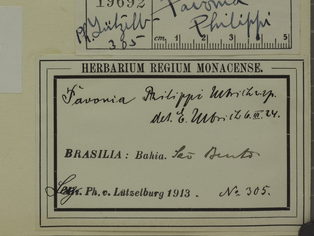 19692 Pavonia
Ph. Lützelb. Philippi
305
cm. 1 2 3 4 5
HERBARIUM REGIUM MONACENSE.
Pavonia Philippi Ulbrich n. sp.
det. E. Ulbrich 6. III. 24.
BRASILIA: Bahia. São Bento
Leg. Ph. v. Lützelburg 1913. No. 305.